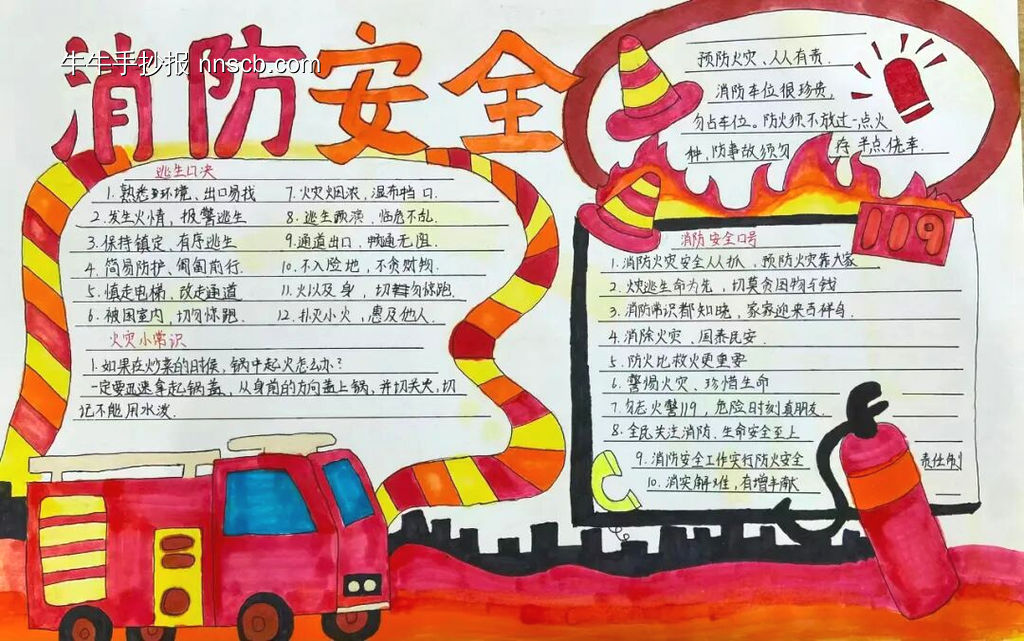 牛牛手抄报 nnscb.com
消防安全
逃生口决
1. 熟悉环境、出口易找
2. 发生火情，报警逃生
3. 保持镇定、有序逃生
4. 简易防护、匍匐前行.
5. 慎走电梯、改走通道
6. 被困室内，切勿惊跑.
7. 火灾烟浓，湿布挡口.
8. 逃生演、临危不乱.
9. 通道出口，畅通无阻.
10. 不入险地，不贪财物.
11. 火以及身，切勿惊跑.
12. 扑灭小火，惠及他人.
火灾小常识
1. 如果在炒菜的时候，锅中起火怎么办?
一定要迅速拿起锅盖，从身前的方向盖上锅，并切关火，切
记不能用水泼.
预防火灾、人人有责.
消防车位很珍贵，
勿占车位。防火须不放过一点火
种，防事故须勿存半点侥幸.
119
消防安全口号
1. 消防火灾安全人人抓，预防火灾靠大家
2. 火灾逃生命为先，切莫贪困物与钱
3. 消防常识都知晓，家家迎来吉祥鸟
4. 消除火灾、国泰民安.
5. 防火比救火更重要
6. 警惕火灾、珍惜生命
7. 勿忘火警119，危险时刻真朋友.
8. 全民关注消防、生命安全至上
9. 消防安全工作实行防火安全责任制
10. 消灾解难，有增手献